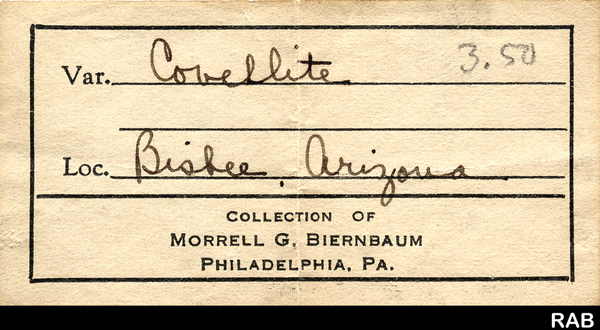 Var. Covellite 3.50
Loc. Bisbee, Arizona
COLLECTION OF
MORRELL G. BIERNBAUM
PHILADELPHIA, PA.
RAB